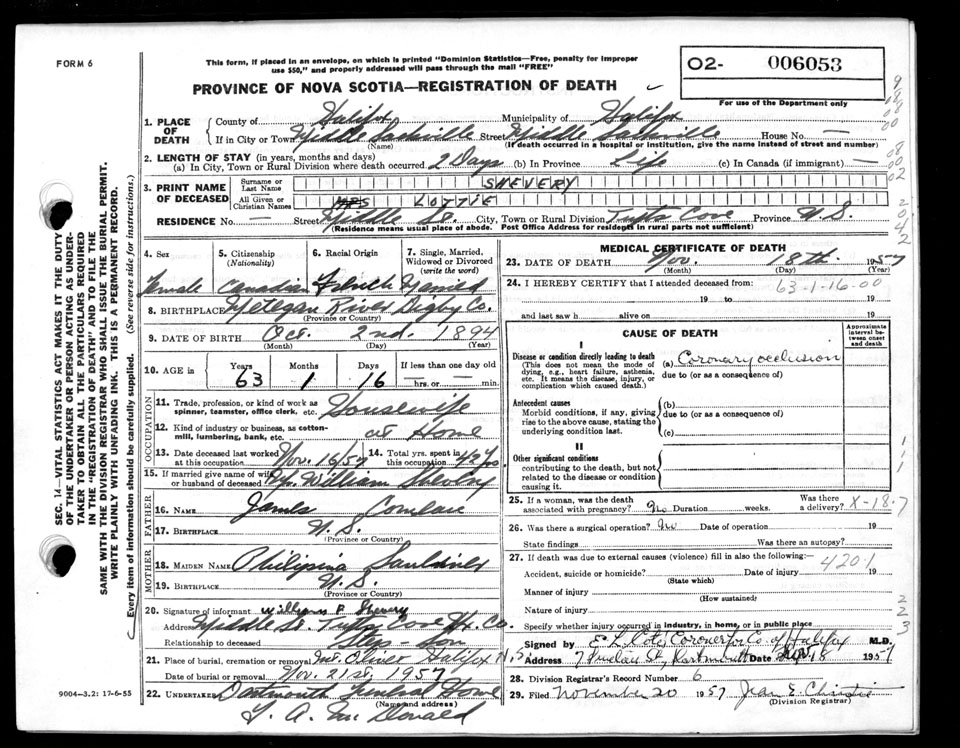 FORM 6
This form, if placed in an envelope, on which is printed "Dominion Statistics—Free, penalty for improper
use $50," and properly addressed will pass through the mail "FREE"
O2- 006053
For use of the Department only
PROVINCE OF NOVA SCOTIA—REGISTRATION OF DEATH
1. PLACE OF DEATH
County of Halifax Municipality of Halifax
If in City or Town Middle Sackville Street Middle Sackville House No. —
(Name) (If death occurred in a hospital or institution, give the name instead of street and number)
2. LENGTH OF STAY (in years, months and days)
(a) In City, Town or Rural Division where death occurred 2 Days (b) In Province Life (c) In Canada (if immigrant) —
3. PRINT NAME OF DECEASED
Surname or Last Name SHEVERY
All Given or Christian Names MRS LOTTIE
RESIDENCE No. — Street Middle St. City, Town or Rural Division Tufts Cove Province N.S.
(Residence means usual place of abode. Post Office Address for residents in rural parts not sufficient)
4. Sex 5. Citizenship (Nationality) 6. Racial Origin 7. Single, Married, Widowed or Divorced (write the word)
Female Canadian French Married
8. BIRTHPLACE Metegan River Digby Co.
(Province or Country)
9. DATE OF BIRTH Oct. 2nd. 1894
(Month) (Day) (Year)
10. AGE in Years Months Days If less than one day old
63 1 16 hrs. or min.
OCCUPATION
11. Trade, profession, or kind of work as spinner, teamster, office clerk, etc. Housewife
12. Kind of industry or business, as cotton-mill, lumbering, bank, etc. at Home
13. Date deceased last worked at this occupation Nov. 16/57 14. Total yrs. spent in this occupation 42 yrs.
15. If married give name of wife or husband of deceased Mr. William Shevery
FATHER
16. NAME James Comeau
17. BIRTHPLACE N.S.
(Province or Country)
MOTHER
18. MAIDEN NAME Philipina Saulnier
19. BIRTHPLACE N.S.
(Province or Country)
20. Signature of informant William P Shevery
Address Middle St. Tufts Cove Hx. Co.
Relationship to deceased Step-Son
21. Place of burial, cremation or removal Mt. Olivet Halifax N.S.
Date of burial or removal Nov. 21st, 1957
22. UNDERTAKER Dartmouth Funeral Home
(Name and address)
MEDICAL CERTIFICATE OF DEATH
23. DATE OF DEATH Nov. 18th. 1957
(Month) (Day) (Year)
24. I HEREBY CERTIFY that I attended deceased from: 63-1-16-00
19 to 19
and last saw h alive on 19
CAUSE OF DEATH
Approximate interval between onset and death
I
Disease or condition directly leading to death (a) Coronary occlusion
(This does not mean the mode of dying, e.g., heart failure, asthenia, etc. It means the disease, injury, or complication which caused death.)
due to (or as a consequence of)
Antecedent causes
Morbid conditions, if any, giving rise to the above cause, stating the underlying condition last.
(b)
due to (or as a consequence of)
(c)
II
Other significant conditions
contributing to the death, but not related to the disease or condition causing it.
25. If a woman, was the death associated with pregnancy? No Duration weeks. Was there a delivery? X-18-7
26. Was there a surgical operation? No Date of operation 19
State findings Was there an autopsy?
27. If death was due to external causes (violence) fill in also the following:— 420.1
Accident, suicide or homicide? Date of injury 19
(State which)
Manner of injury
(How sustained)
Nature of injury
Specify whether injury occurred in industry, in home, or in public place
Signed by Coroner for Co. of Halifax M.D.
Address Dartmouth Date Nov 18 1957
28. Division Registrar's Record Number 6
29. Filed November 20 1957 Jean E. Christie
(Division Registrar)
SEC. 14—VITAL STATISTICS ACT MAKES IT THE DUTY
OF THE UNDERTAKER OR PERSON ACTING AS UNDER-
TAKER TO OBTAIN ALL THE PARTICULARS REQUIRED
IN THE "REGISTRATION OF DEATH" AND TO FILE THE
SAME WITH THE DIVISION REGISTRAR WHO SHALL ISSUE THE BURIAL PERMIT.
WRITE PLAINLY WITH UNFADING INK. THIS IS A PERMANENT RECORD.
Every item of information should be carefully supplied. (See reverse side for instructions.)
9004-3.2: 17-6-55